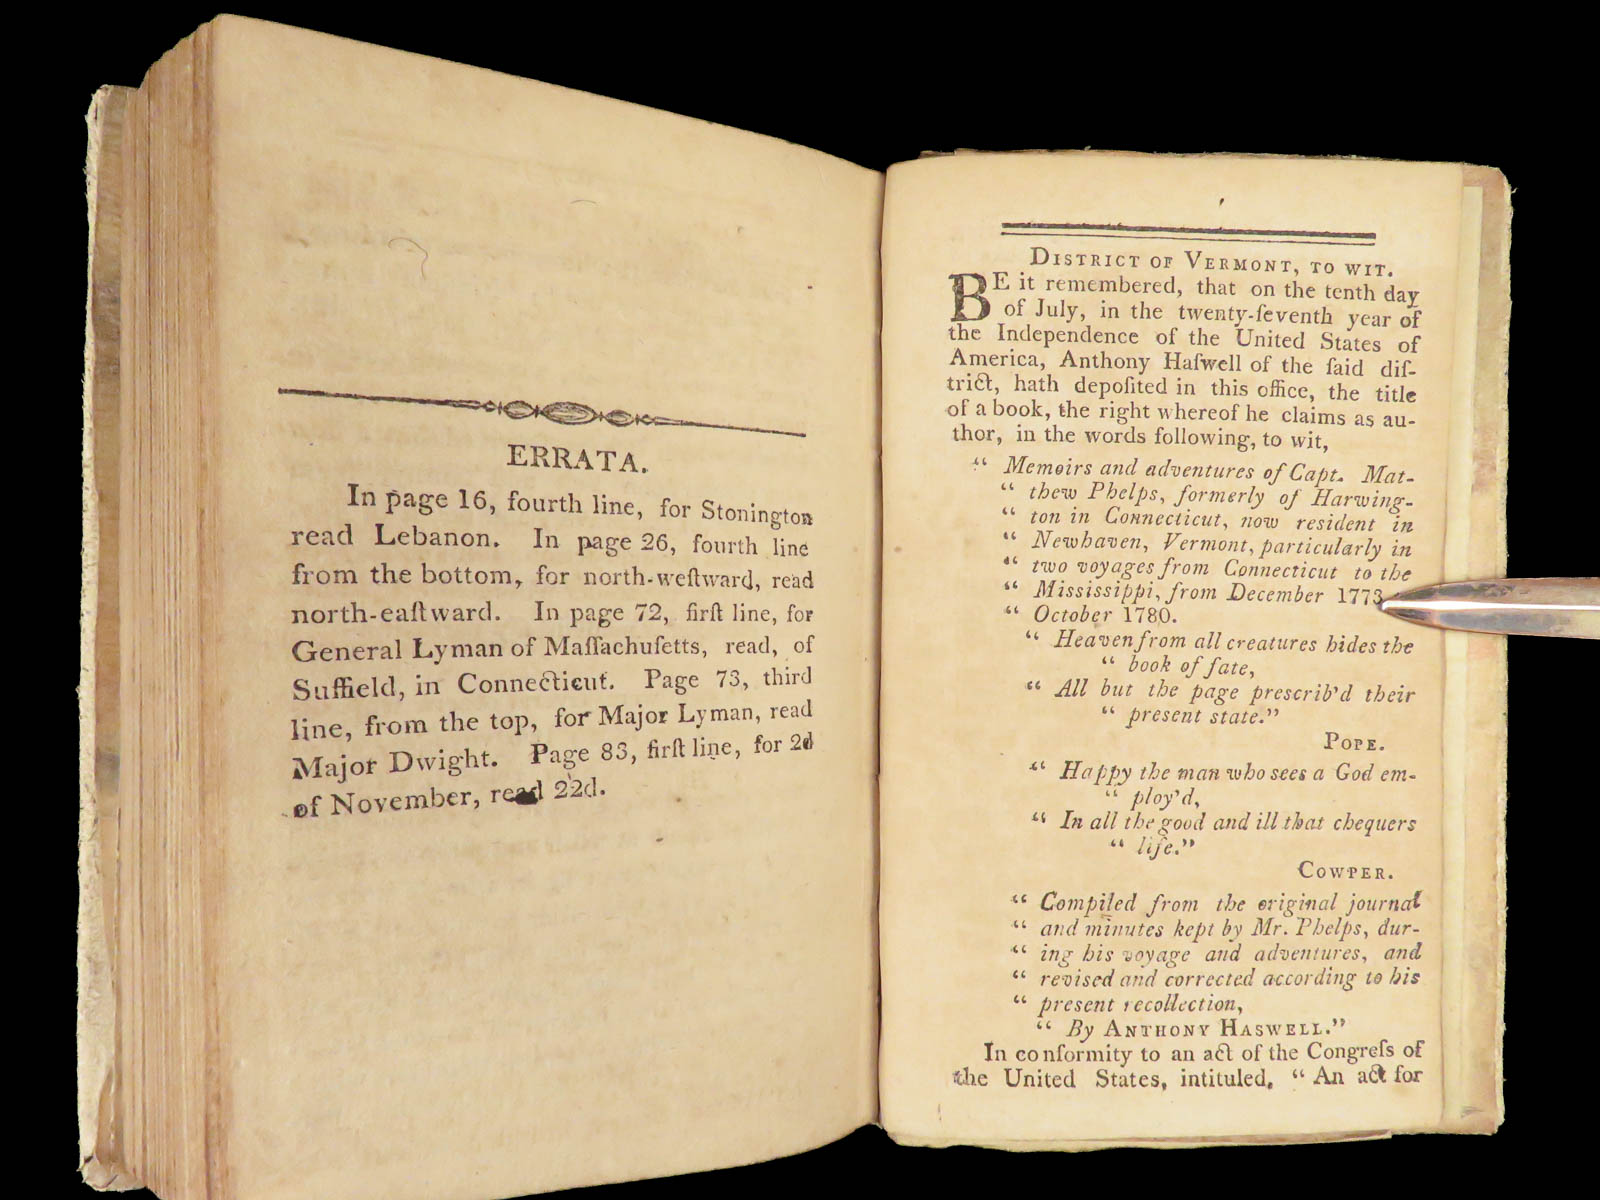 ERRATA.
In page 16, fourth line, for Stonington
read Lebanon. In page 26, fourth line
from the bottom, for north-weſtward, read
north-eaſtward. In page 72, firſt line, for
General Lyman of Maſſachuſetts, read, of
Suffield, in Connecticut. Page 73, third
line, from the top, for Major Lyman, read
Major Dwight. Page 83, firſt line, for 2d
of November, read 22d.
DISTRICT OF VERMONT, TO WIT.
BE it remembered, that on the tenth day
of July, in the twenty-ſeventh year of
the Independence of the United States of
America, Anthony Haſwell of the ſaid diſ-
trict, hath depoſited in this office, the title
of a book, the right whereof he claims as au-
thor, in the words following, to wit,
“ Memoirs and adventures of Capt. Mat-
“ thew Phelps, formerly of Harwing-
“ ton in Connecticut, now resident in
“ Newhaven, Vermont, particularly in
“ two voyages from Connecticut to the
“ Mississippi, from December 1773
“ October 1780.
“ Heaven from all creatures hides the
“ book of fate,
“ All but the page prescrib'd their
“ present state.”
POPE.
“ Happy the man who sees a God em-
“ ploy'd,
“ In all the good and ill that chequers
“ life.”
COWPER.
“ Compiled from the original journal
“ and minutes kept by Mr. Phelps, dur-
“ ing his voyage and adventures, and
“ revised and corrected according to his
“ present recollection,
“ By ANTHONY HASWELL.”
In conformity to an act of the Congreſs of
the United States, intituled, “ An act for